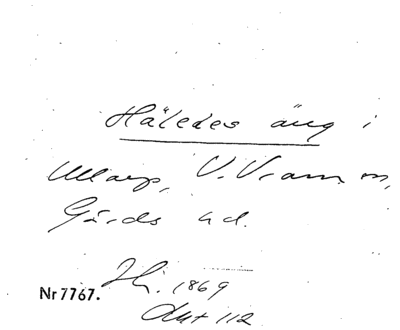 Håledes äng i
Ullarp, V. Vram sn,
Gärds hd.
Hi. 1869
Nr 7767.
Akt 112